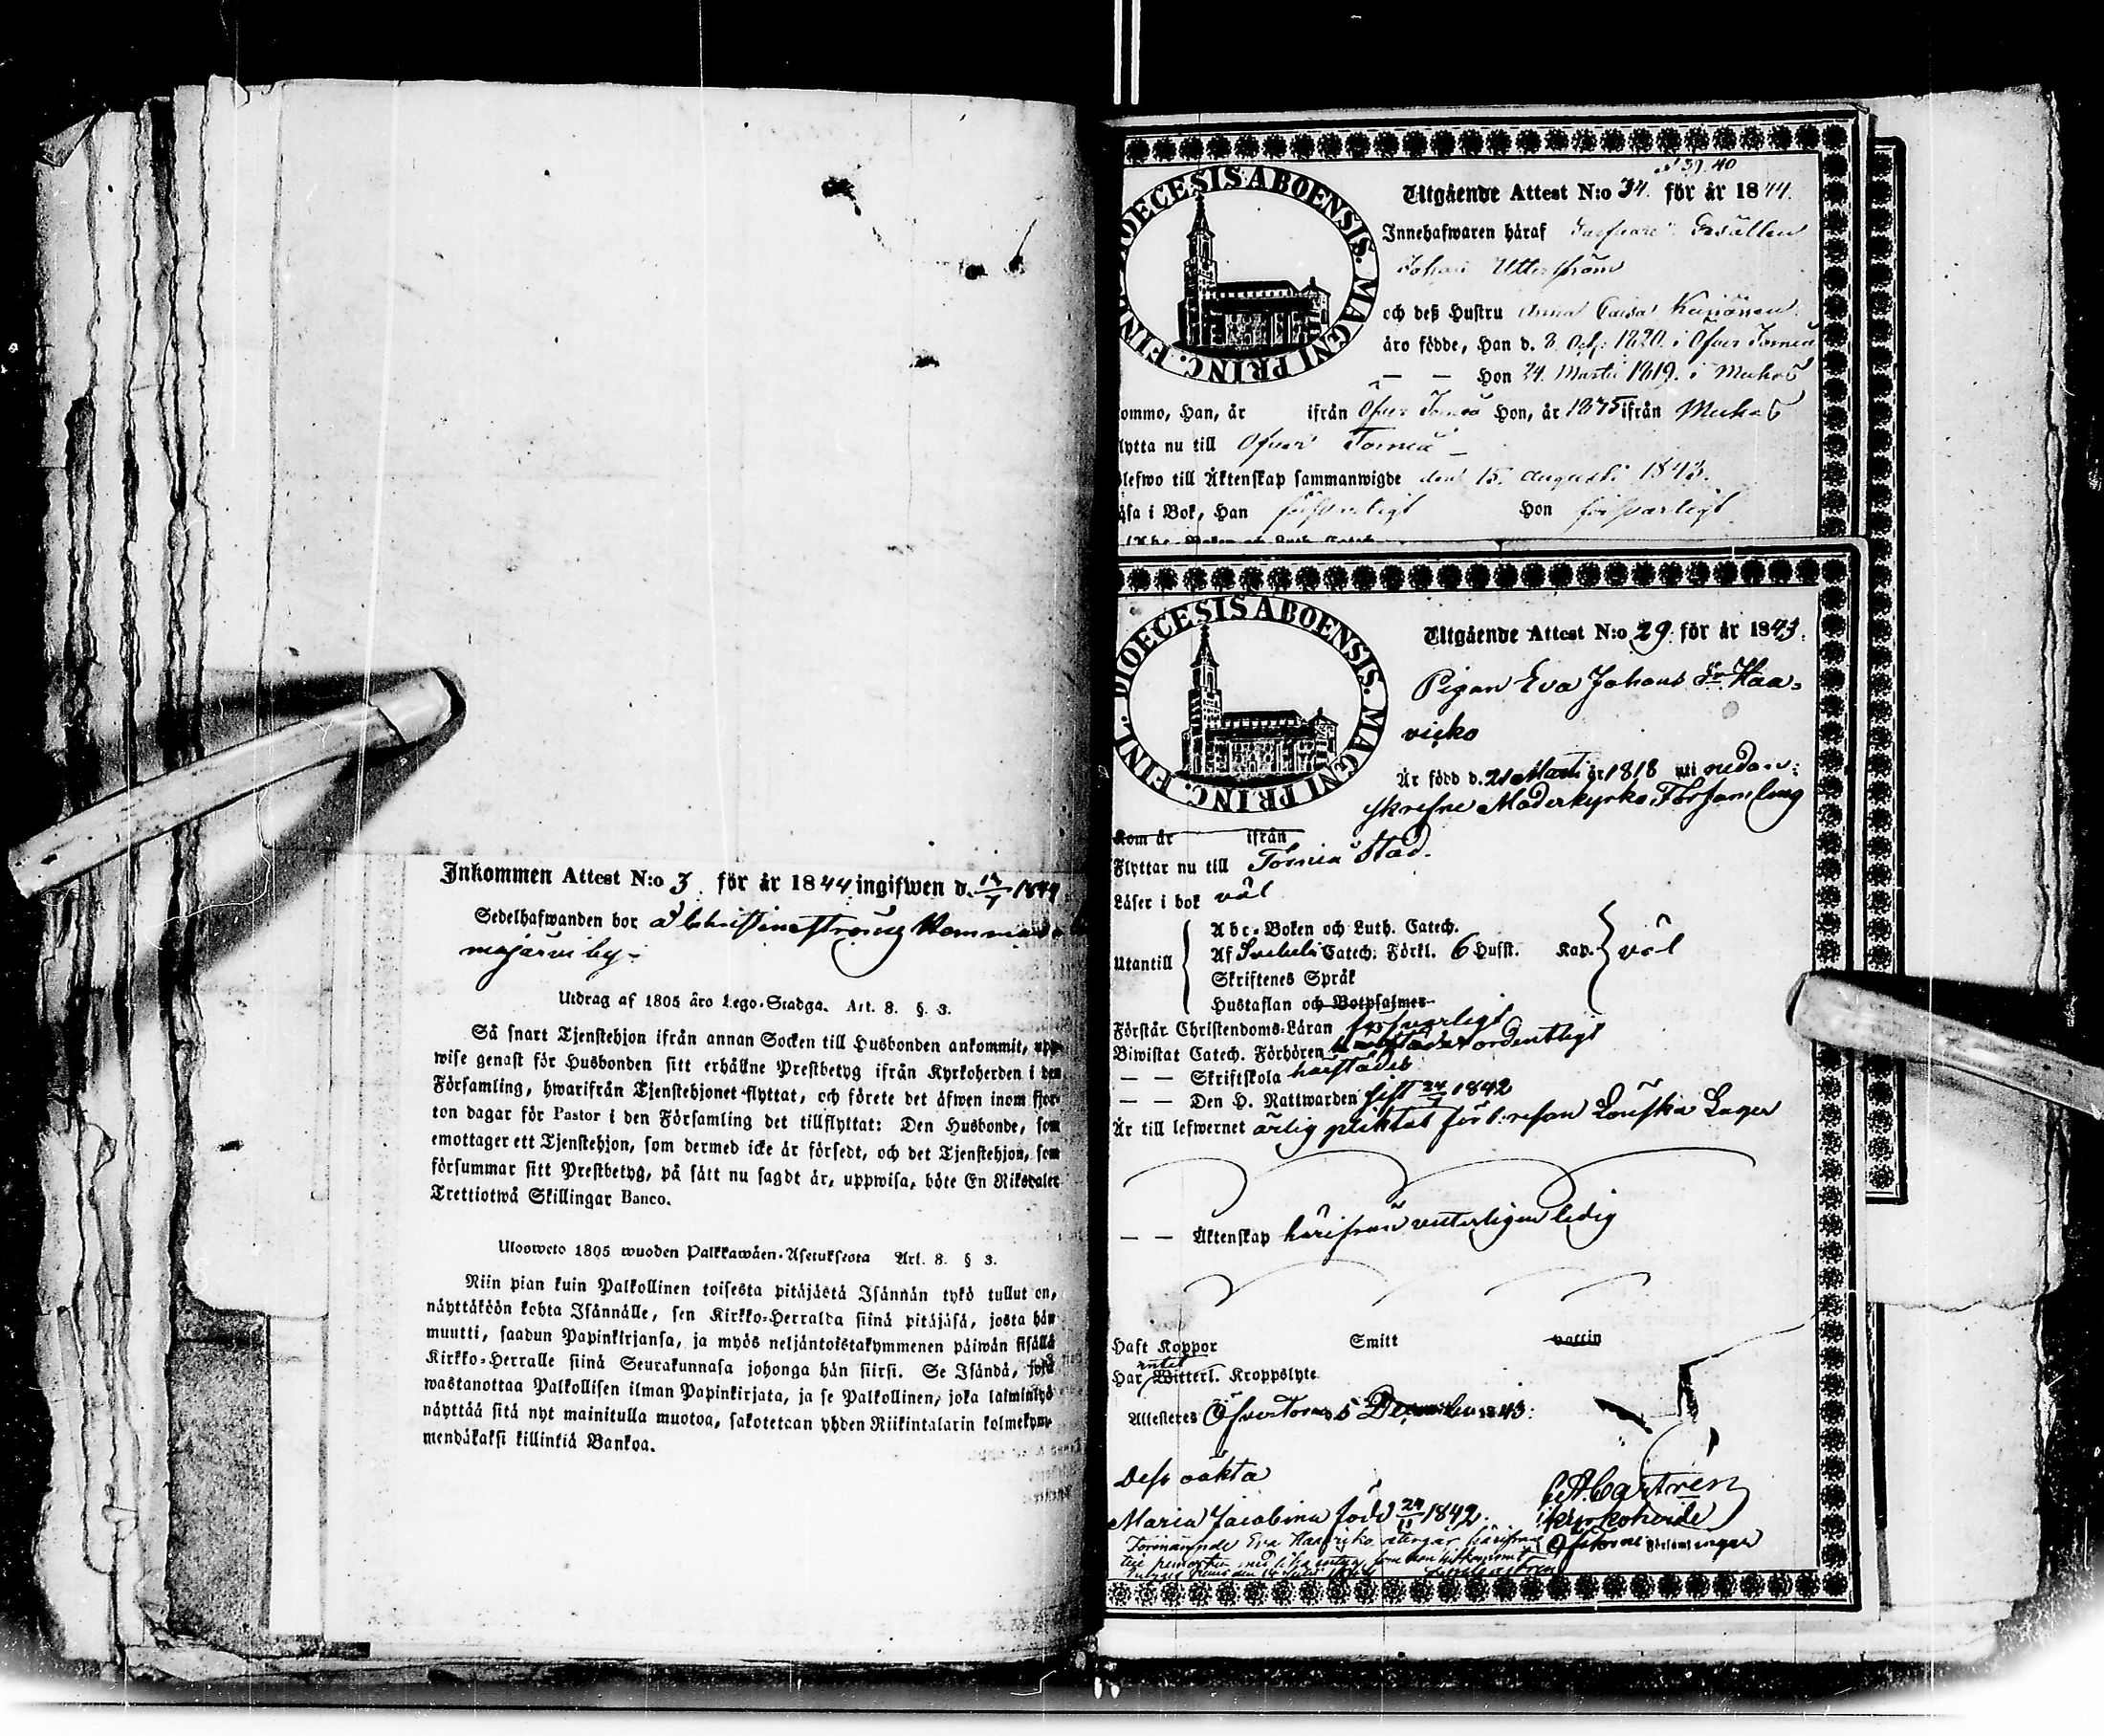 Inkommen Attest N:o 3. för år 1844 ingifwen d. 14/7 1844
Sedelhafwanden bor
majärvi by.
Utdrag af 1805 års Lego-Stadga. Art. 8. §. 3.
Så snart Tjenstehjon ifrån annan Socken till Husbonden ankommit, upp-
wise genast för Husbonden sitt erhållne Prestbetyg ifrån Kyrkoherden i den
Församling, hwarifrån Tjenstehjonet flyttat, och förete det äfwen inom fjor-
ton dagar för Pastor i den Församling det tillflyttat: Den Husbonde, som
emottager ett Tjenstehjon, som dermed icke är försedt, och det Tjenstehjon, som
försummar sitt Prestbetyg, på sätt nu sagdt är, uppwisa, böte En Riksdaler
Trettiotwå Skillingar Banco.
Ulosweto 1805 wuoden Palkkawäen-Asetuksesta Art. 8. § 3.
Niin pian kuin Palkollinen toisesta pitäjästä Isännän tykö tullut on,
näyttäköön kohta Isännälle, sen Kirkko-Herralda siinä pitäjäsä, josta hän
muutti, saadun Papinkirjansa, ja myös neljäntoistakymmenen päiwän sisällä
Kirkko-Herralle siinä Seurakunnasa johonga hän siirsi. Se Isändä, joka
wastanottaa Palkollisen ilman Papinkirjata, ja se Palkollinen, joka laiminlyö
näyttää sitä nyt mainitulla muotoa, sakotetaan yhden Riikintalarin kolmekym-
mendäkaksi killinkiä Bankoa.
39. 40
FINL. DIOECESIS ABOENSIS. MAGNI PRINC.
Utgående Attest N:o 34. för år 1844.
Innehafwaren häraf Gesällen
Johan Utterström
och deß Hustru Anna Caisa Keinänen
äro födde, Han d. 8 Oct. 1820. i Öfver Torneå
— — Hon 24. Martii 1819. i Muhos
ommo, Han, år ifrån Öfver Torneå Hon, år 1875 ifrån Muhos
lytta nu till Öfver Torneå
lefwo till Äktenskap sammanwigde den 15. Augusti 1843.
äsa i Bok, Han försvarligt Hon försvarligt
FINL. DIOECESIS ABOENSIS. MAGNI PRINC.
Utgående Attest N:o 29. för år 1843.
Pigan Eva Johans dr Haa-
vicko
Är född d. 21 Marti år 1818 uti nedan-
skrefne Moderkyrko Församling
Kom år ifrån
Flyttar nu till Torneå Stad.
Läser i bok väl
Utantill
Abc-Boken och Luth. Catech.
Af Svebeli Catech. Förkl. 6 Hufst. Kap. väl
Skriftenes Språk
Hustaflan och Botpsalmer
Förstår Christendoms-Läran försvarligt
Biwistat Catech. Förhören härstädes ordentligt
— — Skriftskola härstädes
— — Den H. Nattwarden sist 24/7 1842
Är till lefwernet ärlig pliktat för 1. resan Lönska Läger
— — Äktenskap härifrån vitterligen ledig
Haft Koppor Smitt vaccin
Har intet Witterl. Kroppslyte
Attesteras Öfvertorneå 5 December 1843:
Dess oäkta
Maria Jacobina född 24/11 1842.
C A Castrén
kyrkoherde